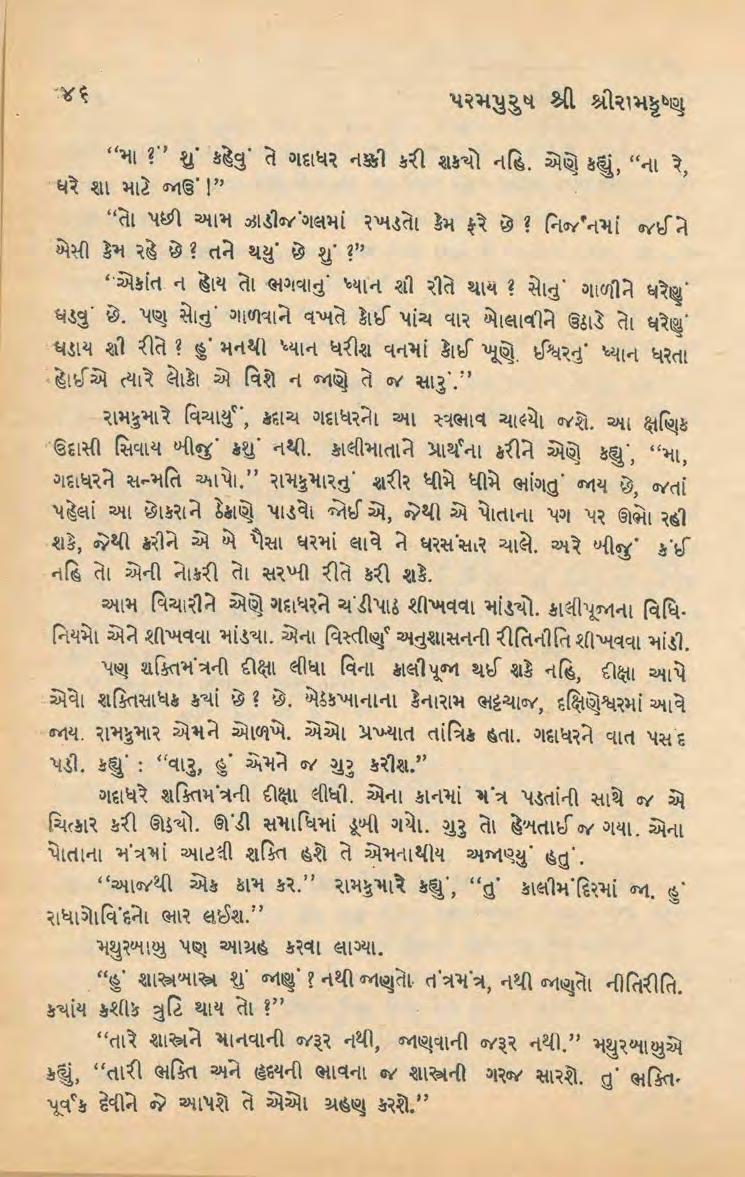 ૪૬
પરમપુરુષ શ્રી શ્રીરામકૃષ્ણ
“મા ?” શું કહેવું તે ગદાધર નક્કી કરી શકયો નહિ. એણે કહ્યું, “ના રે,
ઘરે શા માટે જાઉં !”
“તો પછી આમ ઝાડીજંગલમાં રખડતો કેમ ફરે છે ? નિર્જનમાં જઈને
બેસી કેમ રહે છે ? તને થયું છે શું ?”
“એકાંત ન હોય તો ભગવાનું ધ્યાન શી રીતે થાય ? સોનું ગાળીને ઘરેણું
ઘડવું છે. પણ સોનું ગાળવાને વખતે કોઈ પાંચ વાર બોલાવીને ઉઠાડે તો ઘરેણું
ઘડાય શી રીતે ? હું મનથી ધ્યાન ધરીશ વનમાં કોઈ ખૂણે. ઈશ્વરનું ધ્યાન ધરતા
હોઈએ ત્યારે લોકો એ વિશે ન જાણે તે જ સારું.”
રામકુમારે વિચાર્યું, કદાચ ગદાધરનો આ સ્વભાવ ચાલ્યો જશે. આ ક્ષણિક
ઉદાસી સિવાય બીજું કશું નથી. કાલીમાતાને પ્રાર્થના કરીને એણે કહ્યું, “મા,
ગદાધરને સન્મતિ આપો.” રામકુમારનું શરીર ધીમે ધીમે ભાંગતું જાય છે, જતાં
પહેલાં આ છોકરાને ઠેકાણે પાડવો જોઈએ, જેથી એ પોતાના પગ પર ઊભો રહી
શકે, જેથી કરીને એ બે પૈસા ઘરમાં લાવે ને ઘરસંસાર ચાલે. અરે બીજું કંઈ
નહિ તો એની નોકરી તો સરખી રીતે કરી શકે.
આમ વિચારીને એણે ગદાધરને ચંડીપાઠ શીખવવા માંડયો. કાલીપૂજાના વિધિ-
નિયમો એને શીખવવા માંડયા. એના વિસ્તીર્ણ અનુશાસનની રીતિનીતિ શીખવવા માંડી.
પણ શક્તિમંત્રની દીક્ષા લીધા વિના કાલીપૂજા થઈ શકે નહિ, દીક્ષા આપે
એવો શક્તિસાધક કયાં છે ? છે. બેઠકખાનાના કેનારામ ભટ્ટચાજ, દક્ષિણેશ્વરમાં આવે
જાય. રામકુમાર એમને ઓળખે. એઓ પ્રખ્યાત તાંત્રિક હતા. ગદાધરને વાત પસંદ
પડી. કહ્યું : “વારુ, હું એમને જ ગુરુ કરીશ.”
ગદાધરે શક્તિમંત્રની દીક્ષા લીધી. એના કાનમાં મંત્ર પડતાંની સાથે જ એ
ચિત્કાર કરી ઊઠયો. ઊંડી સમાધિમાં ડૂબી ગયો. ગુરુ તો હેબતાઈ જ ગયા. એના
પોતાના મંત્રમાં આટલી શક્તિ હશે તે એમનાથીય અજાણ્યું હતું.
“આજથી એક કામ કર.” રામકુમારે કહ્યું, “તું કાલીમંદિરમાં જા. હું
રાધાગોવિંદનો ભાર લઈશ.”
મથુરબાબુ પણ આગ્રહ કરવા લાગ્યા.
“હું શાસ્ત્રબાસ્ત્ર શું જાણું ? નથી જાણતો તંત્રમંત્ર, નથી જાણતો નીતિરીતિ.
કયાંય કશીક ત્રુટિ થાય તો ?”
“તારે શાસ્ત્રને માનવાની જરૂર નથી, જાણવાની જરૂર નથી.” મથુરબાબુએ
કહ્યું, “તારી ભક્તિ અને હૃદયની ભાવના જ શાસ્ત્રની ગરજ સારશે. તું ભક્તિ-
પૂર્વક દેવીને જે આપશે તે એઓ ગ્રહણ કરશે.”